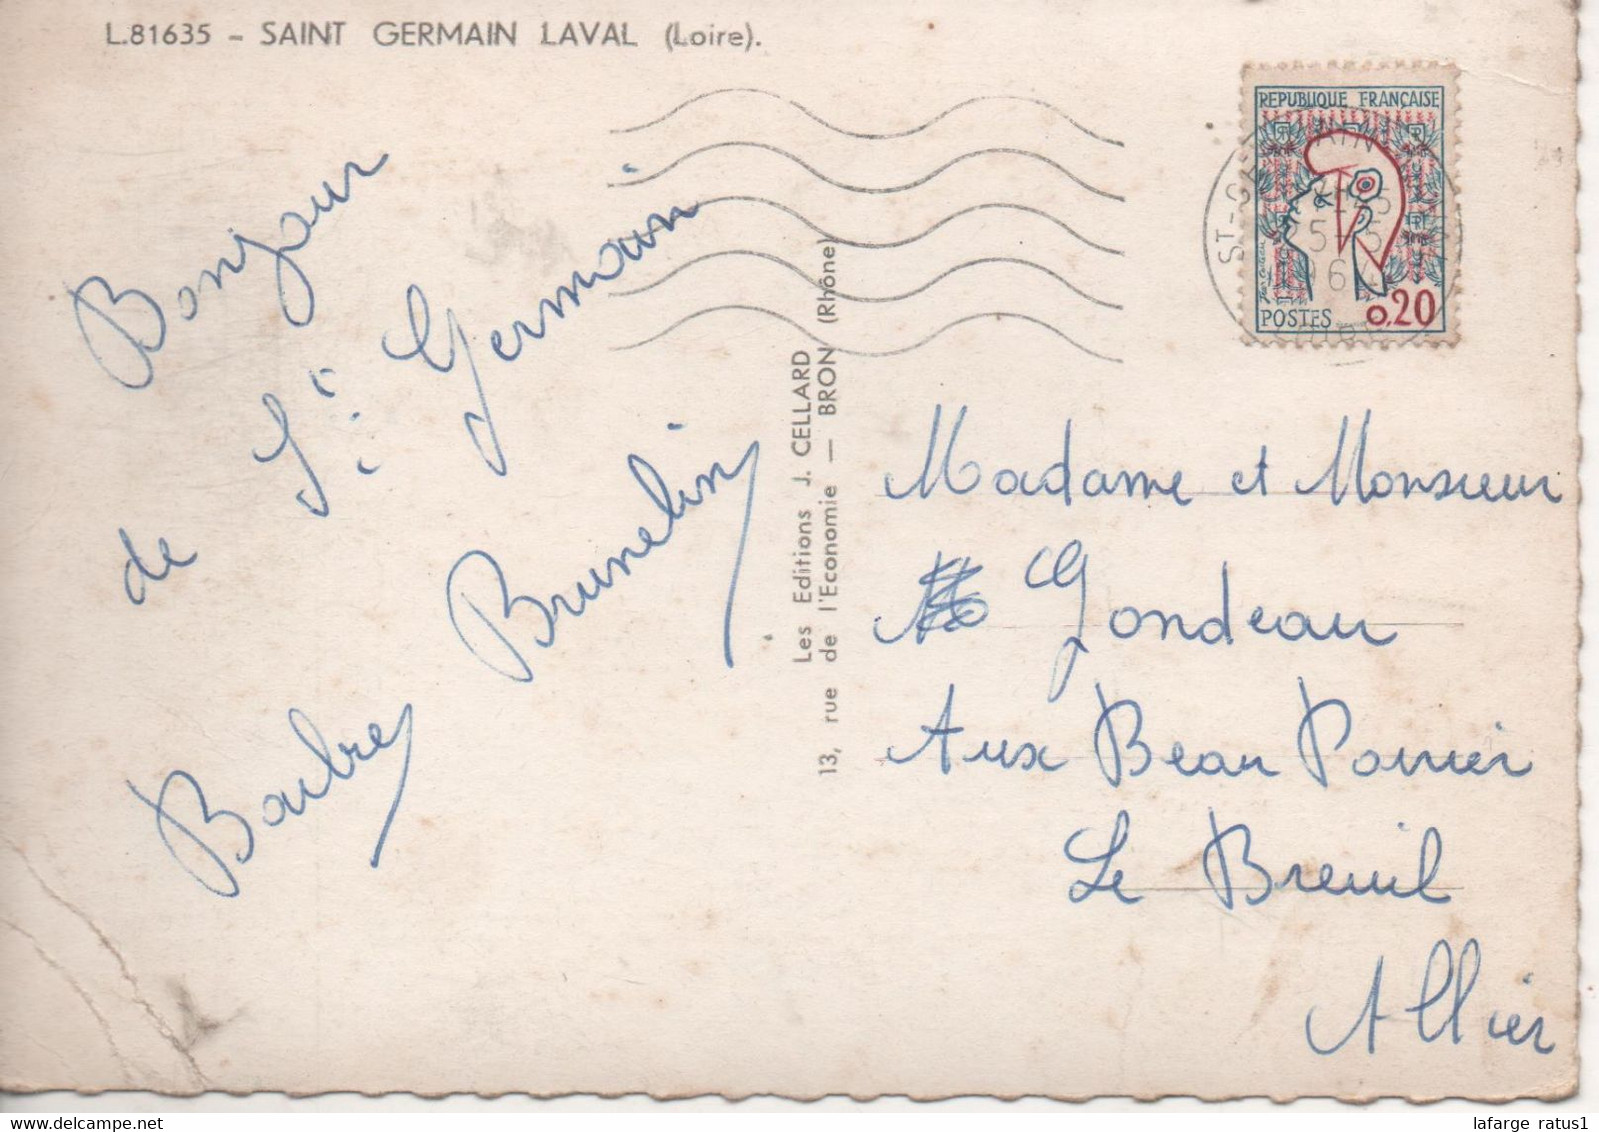 L.81635 - SAINT GERMAIN LAVAL (Loire).
REPUBLIQUE FRANÇAISE
POSTES 0,20
Bonjour
de St Germain
Brunelin
Barbrey
Les Editions J. CELLARD
13, rue de l'Economie — BRON (Rhône)
Madame et Monsieur
Gondeau
Aux Beau Poirier
Le Breuil
Allier
lafarge ratus1